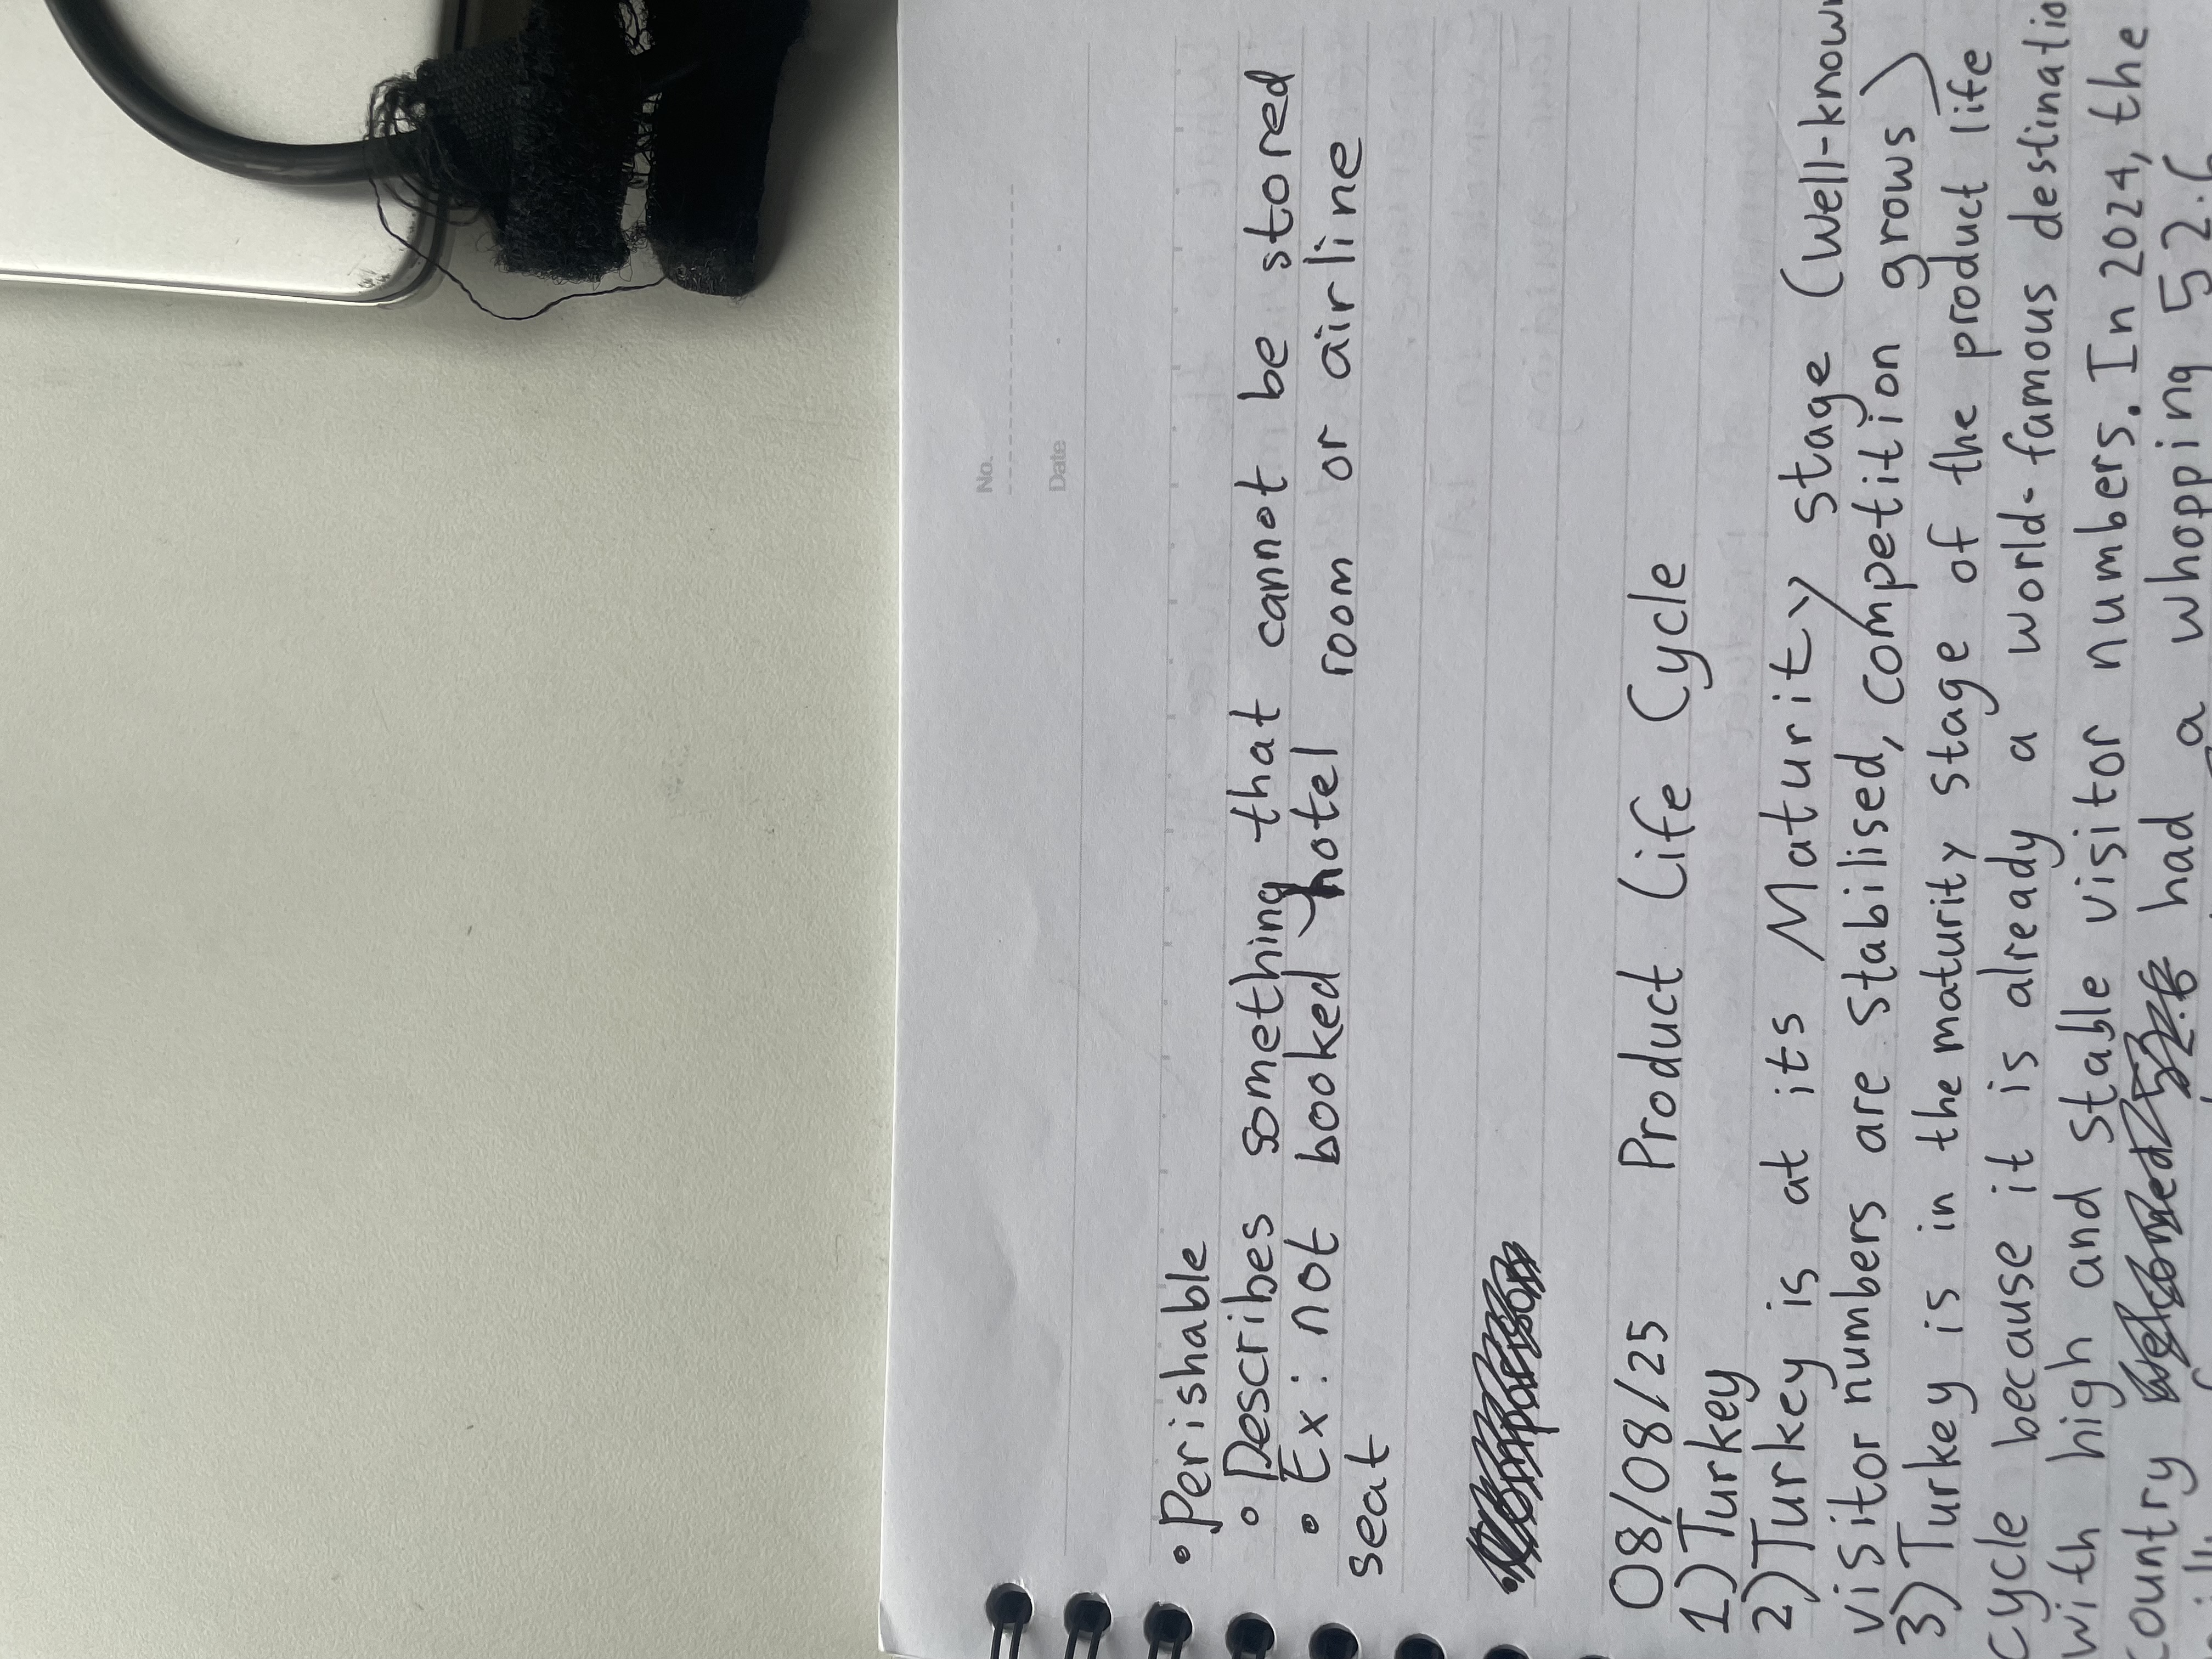 No.
Date
• Perishable
• Describes something that cannot be stored
• Ex: not booked hotel room or airline
seat
08/08/25 Product Life Cycle
1) Turkey
2) Turkey is at its Maturity stage (Well-known
visitor numbers are stabilised, competition grows)
3) Turkey is in the maturity stage of the product life
cycle because it is already a world-famous destinatio
with high and stable visitor numbers. In 2024, the
country had a whopping 52.6